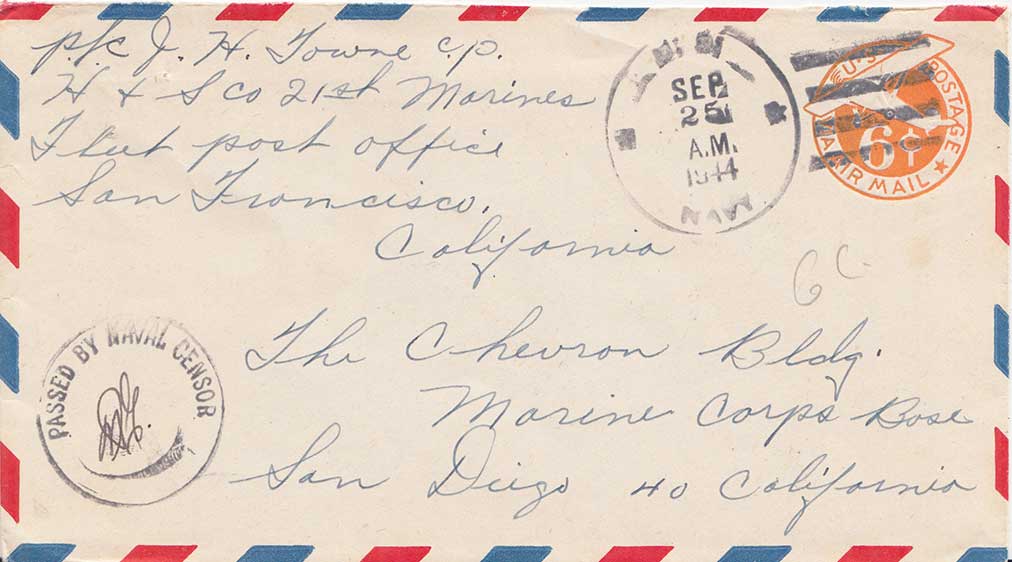 pfc J. H. Towne c.p.
H & S co 21st Marines
Fleet post office
San Francisco.
California
SEP
25
A.M.
1944
NAVY
U.S. POSTAGE
6¢
AIR MAIL
6c
PASSED BY NAVAL CENSOR
The Chevron Bldg.
Marine Corps Base
San Diego 40 California